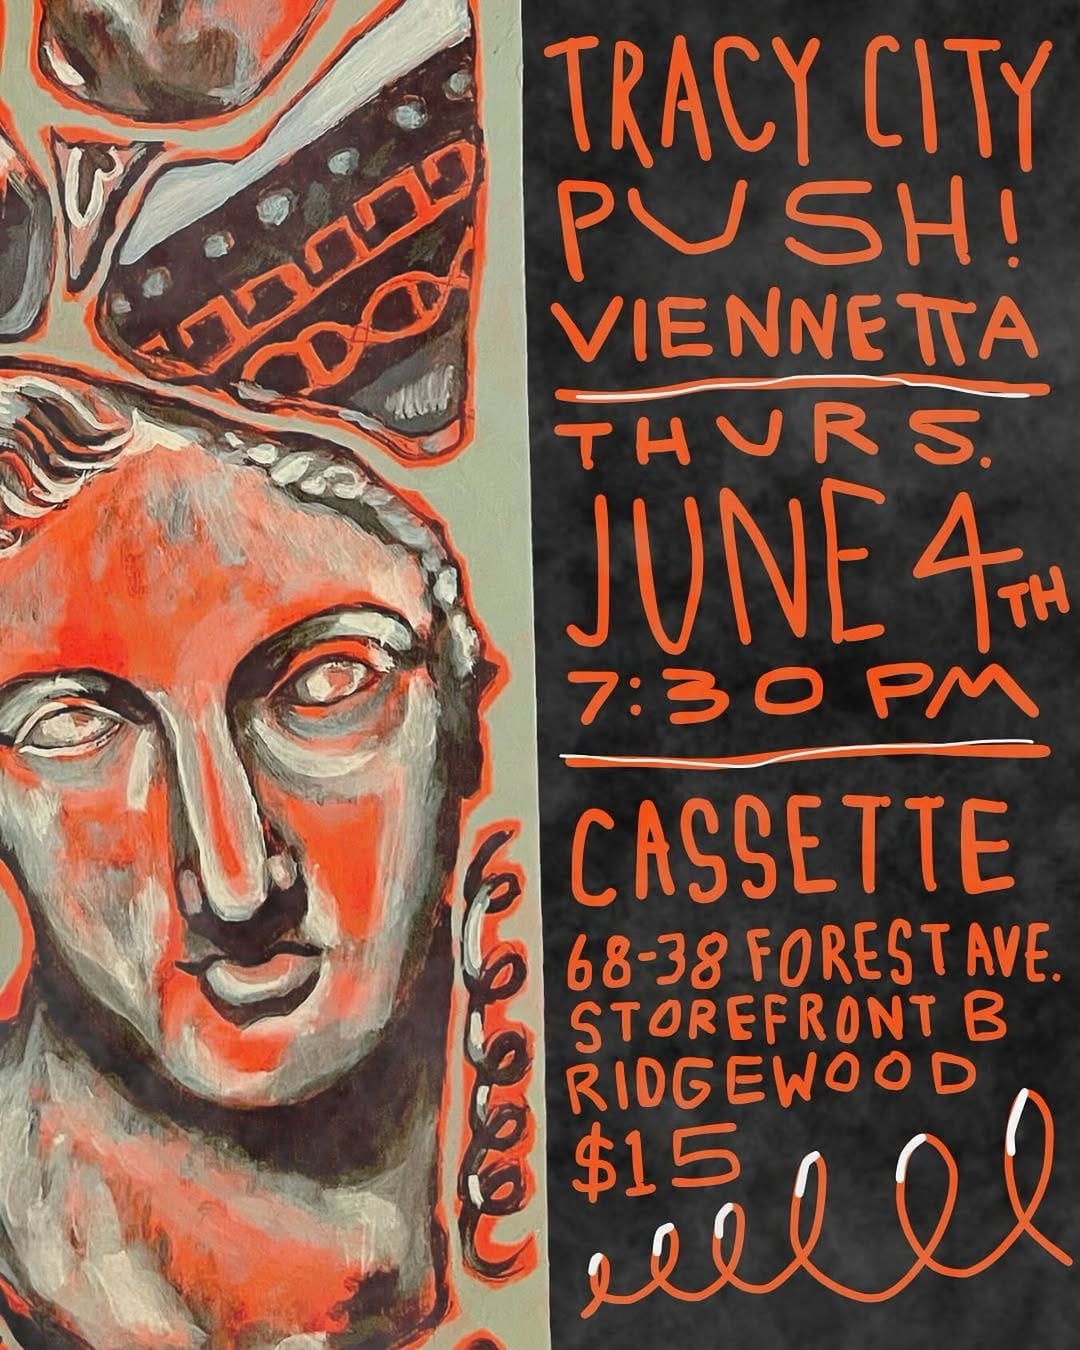 TRACY CITY
PUSH!
VIENNETTA
THURS.
JUNE 4TH
7:30 PM
CASSETTE
68-38 FOREST AVE.
STOREFRONT B
RIDGEWOOD
$15